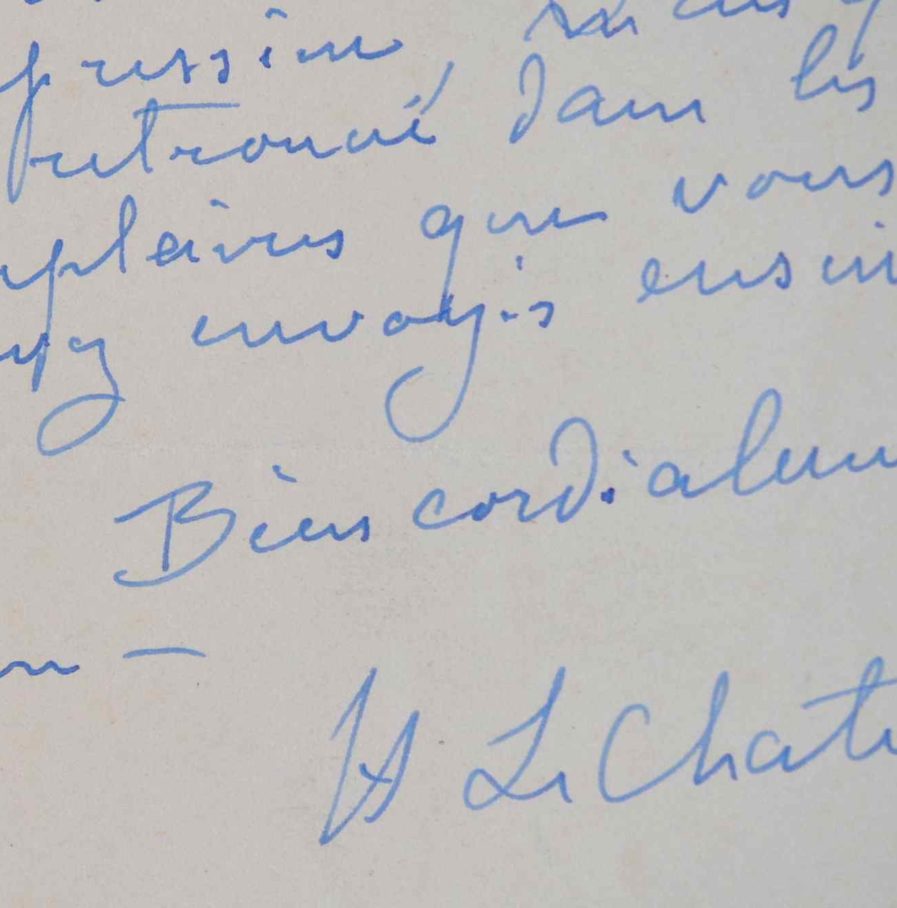 pression,
retrouvé dans les
mplaires que vous
envoyés ensui
Bien cordialem
H Le Chate